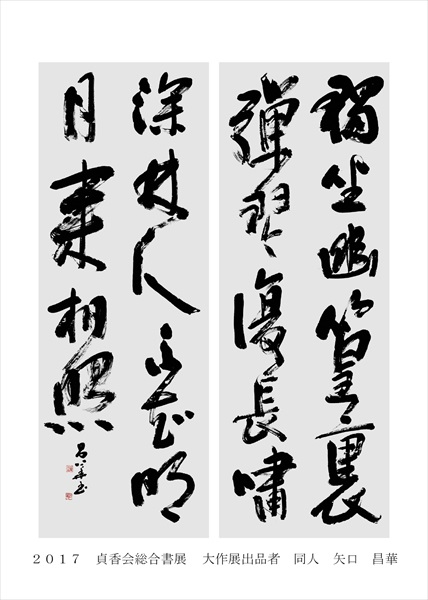 獨坐幽篁裏
彈琴復長嘯
深林人不知明
月來相照
昌華書
2017 貞香会総合書展 大作展出品者 同人 矢口 昌華